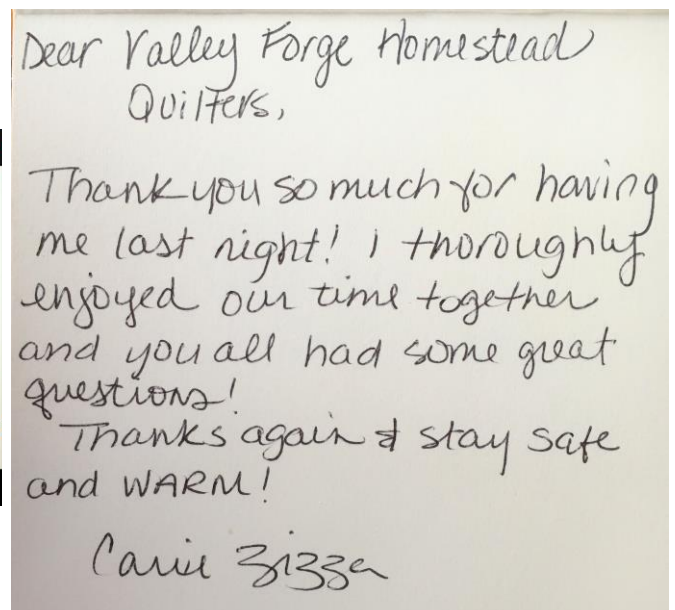 Dear Valley Forge Homestead
Quilters,
Thank you so much for having
me last night! I thoroughly
enjoyed our time together
and you all had some great
questions!
Thanks again & stay safe
and WARM!
Carrie Zizza